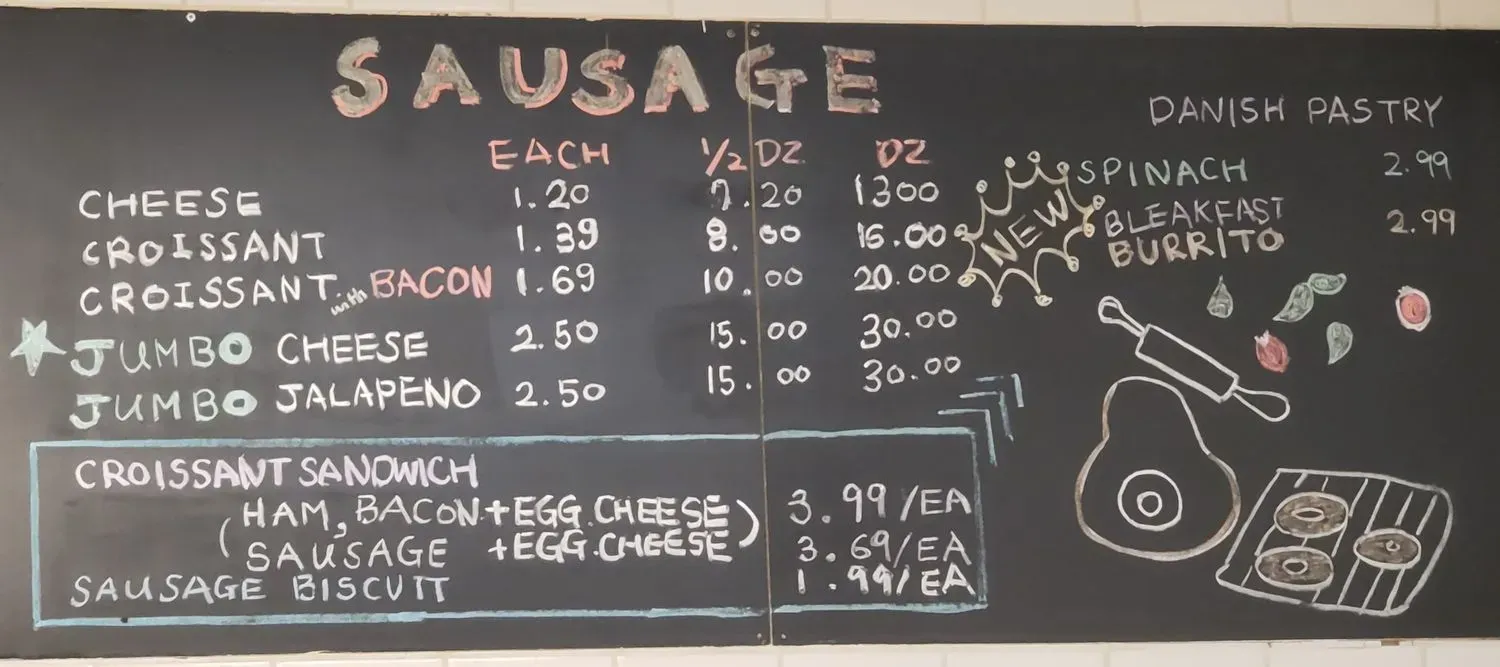 SAUSAGE
EACH 1/2 DZ DZ
CHEESE 1.20 7.20 1300
CROISSANT 1.39 8.00 16.00
CROISSANT with BACON 1.69 10.00 20.00
JUMBO CHEESE 2.50 15.00 30.00
JUMBO JALAPENO 2.50 15.00 30.00
CROISSANT SANDWICH
(HAM, BACON + EGG.CHEESE) 3.99/EA
SAUSAGE + EGG.CHEESE 3.69/EA
SAUSAGE BISCUIT 1.99/EA
DANISH PASTRY
NEW
SPINACH 2.99
BLEAKFAST 2.99
BURRITO